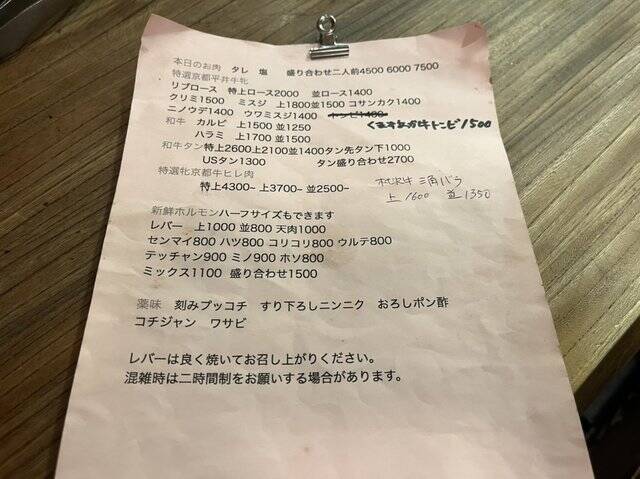 本日のお肉 タレ 塩 盛り合わせ二人前4500 6000 7500
特選京都平井牛牝
リブロース 特上ロース2000 並ロース1400
クリミ1500 ミスジ 上1800並1500 コサンカク1400
ニノウデ1400 ウワミスジ1400 トンビ1400
牛トンビ1500
和牛 カルビ 上1500 並1250
ハラミ 上1700 並1500
和牛タン特上2600上2100並1400タン先タン下1000
USタン1300 タン盛り合わせ2700
特選牝京都牛ヒレ肉
特上4300~ 上3700~ 並2500~
三角バラ
上 1600 並1350
新鮮ホルモンハーフサイズもできます
レバー 上1000 並800 天肉1000
センマイ800 ハツ800 コリコリ800 ウルテ800
テッチャン900 ミノ900 ホソ800
ミックス1100 盛り合わせ1500
薬味 刻みプッコチ すり下ろしニンニク おろしポン酢
コチジャン ワサビ
レバーは良く焼いてお召し上がりください。
混雑時は二時間制をお願いする場合があります。